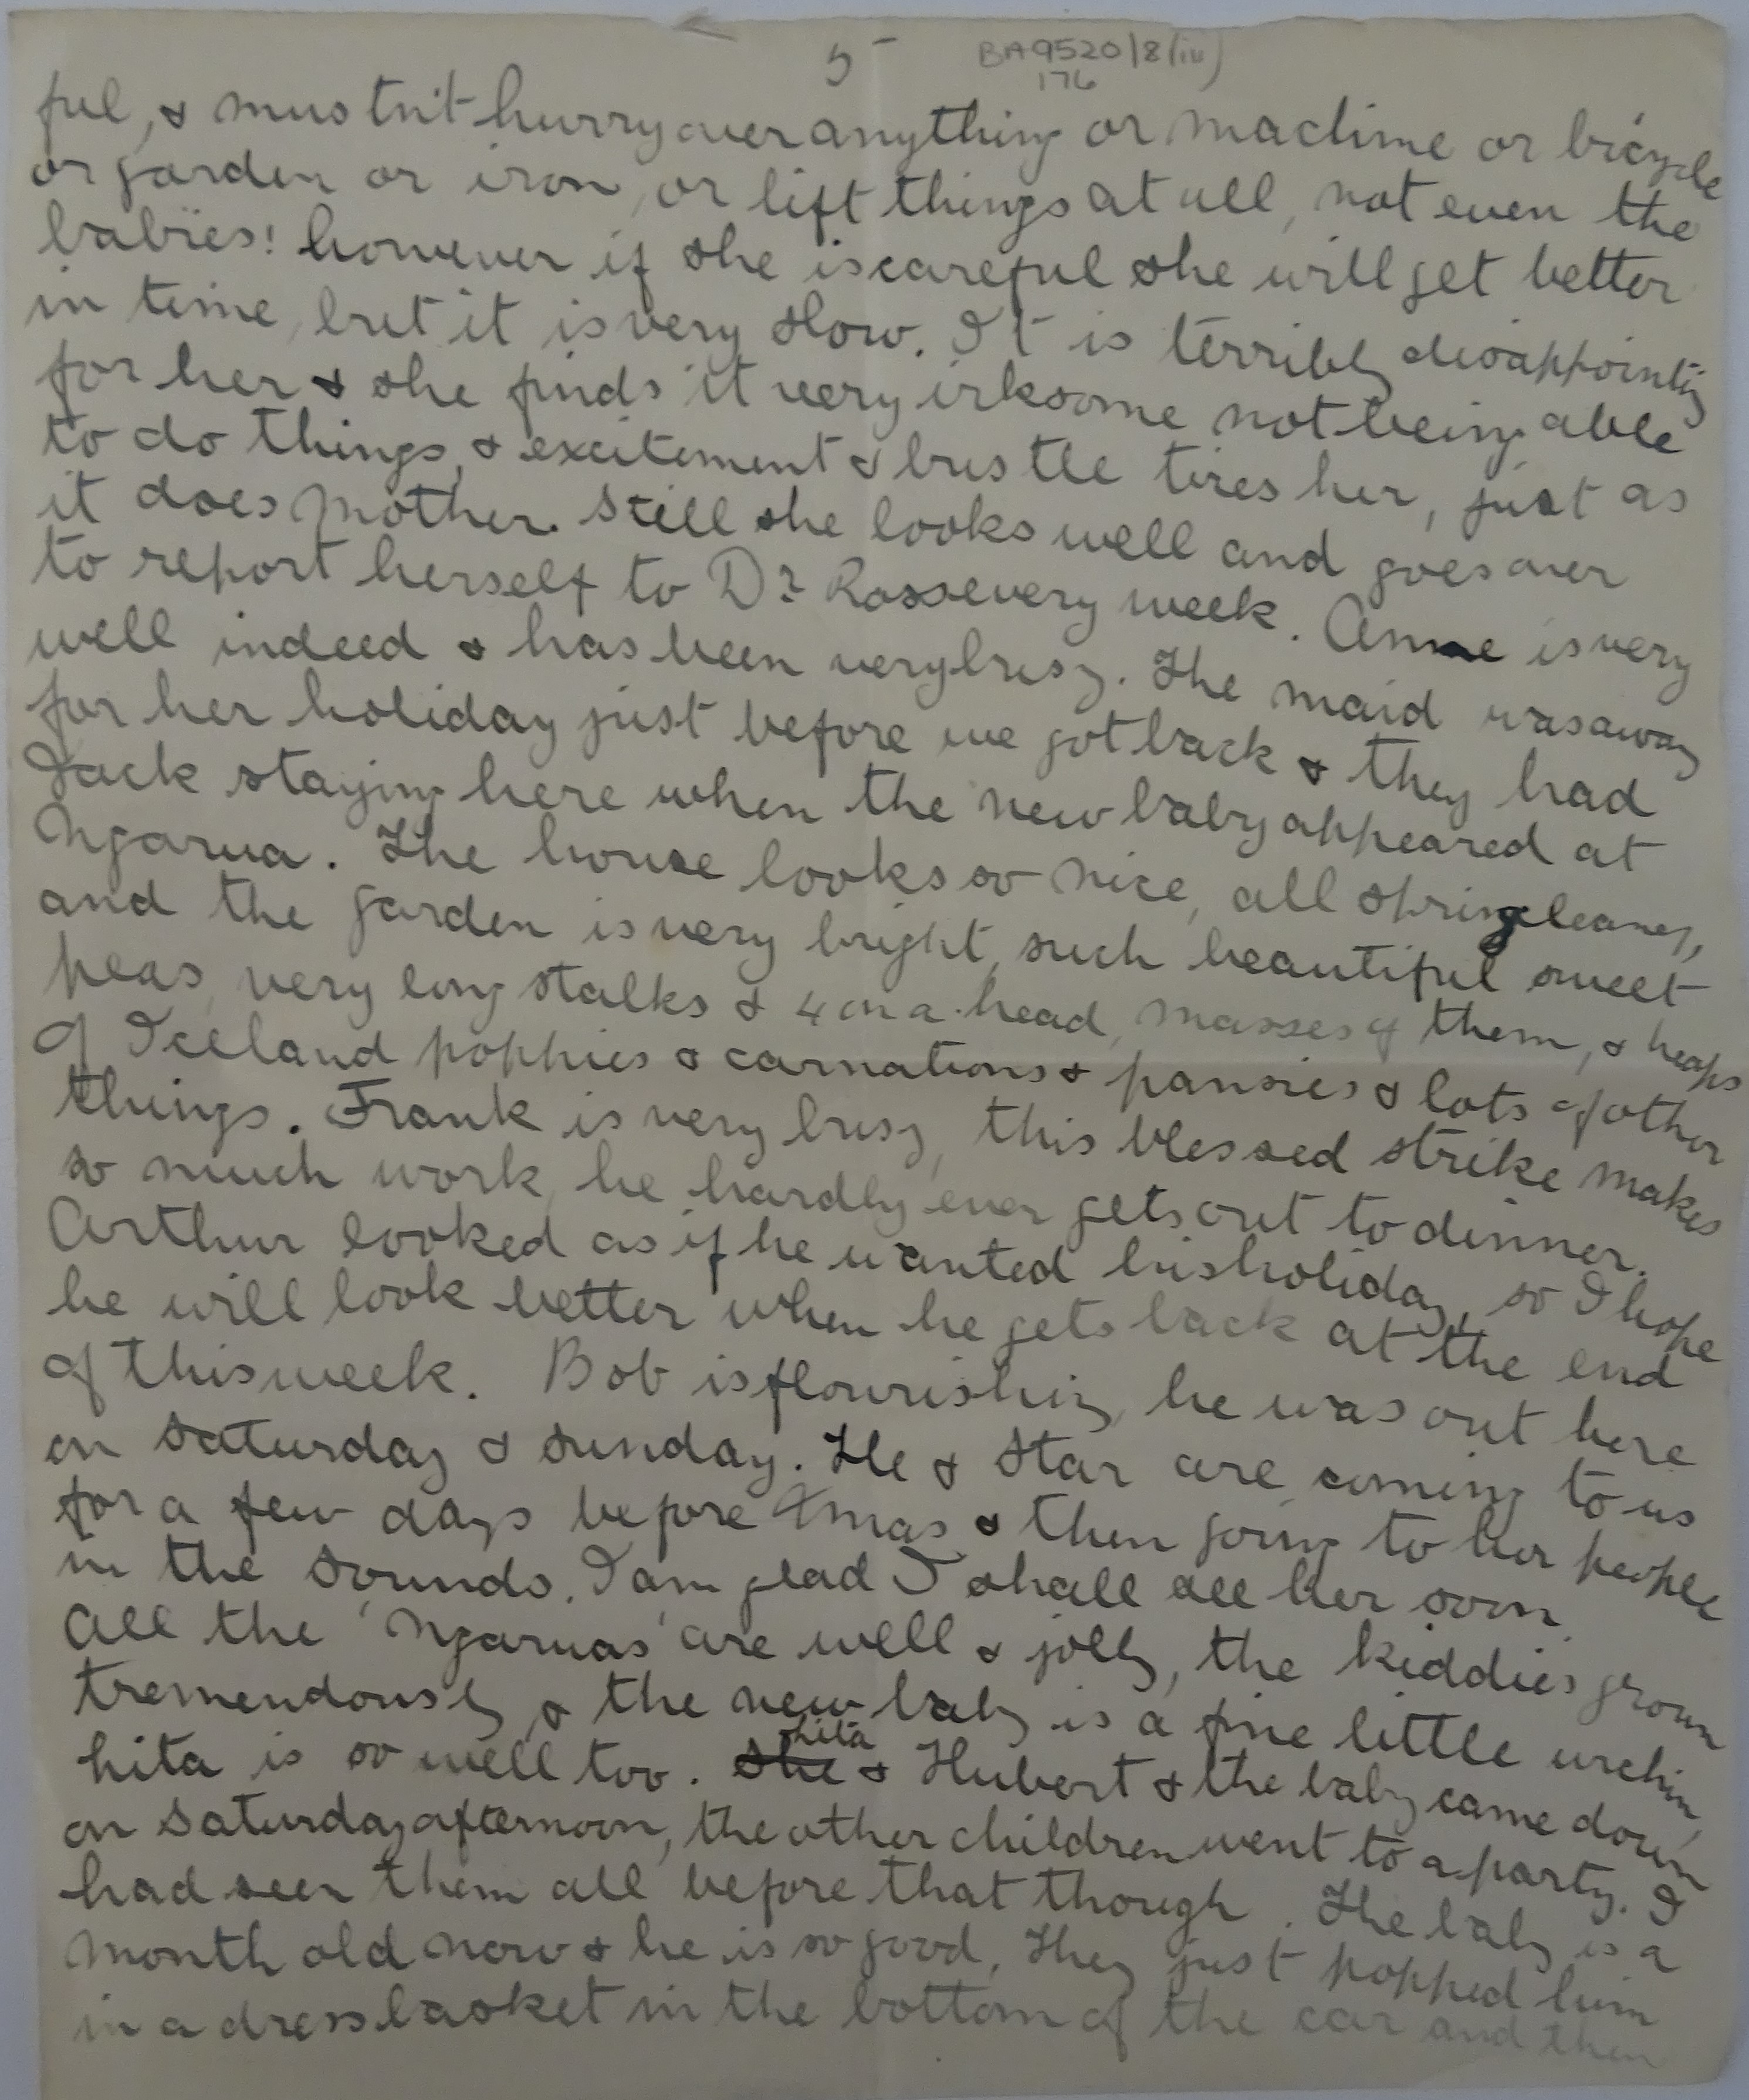 5 -
BA9520/8(iv)
176
ful, & mus tn't hurry over anything or machine or bicycle
or garden or iron, or lift things at all, not even the
babies! however if she is careful she will get better
in time, but it is very slow. It is terribly disappointing
for her & she finds it very irksome not being able
to do things, & excitement & bustle tires her, just as
it does Mother. Still she looks well and goes over
to report herself to Dr Ross every week. Anne is very
well indeed & has been very busy. The maid was away
for her holiday just before we got back & they had
Jack staying here when the new baby appeared at
Ngarua. The house looks so nice, all spring cleaned,
and the garden is very bright, such beautiful sweet
peas, very long stalks & 4 on a head, masses of them, & heaps
of Iceland poppies & carnations & pansies & lots of other
things. Frank is very busy, this blessed strike makes
so much work, he hardly ever gets out to dinner.
Arthur looked as if he wanted his holiday, so I hope
he will look better when he gets back at the end
of this week. Bob is flourishing, he was out here
on Saturday & Sunday. He & Star are coming to us
for a few days before Xmas & then going to her people
in the Sounds. I am glad I shall see her soon.
All the 'Ngaruas' are well & jolly, the kiddies grown
tremendously, & the new baby is a fine little urchin,
hita is so well too. she & Hubert & the baby came down
hita
on Saturday afternoon, the other children went to a party. I
had seen them all before that though. The baby is a
month old now & he is so good. They just popped him
in a dress basket in the bottom of the car and then